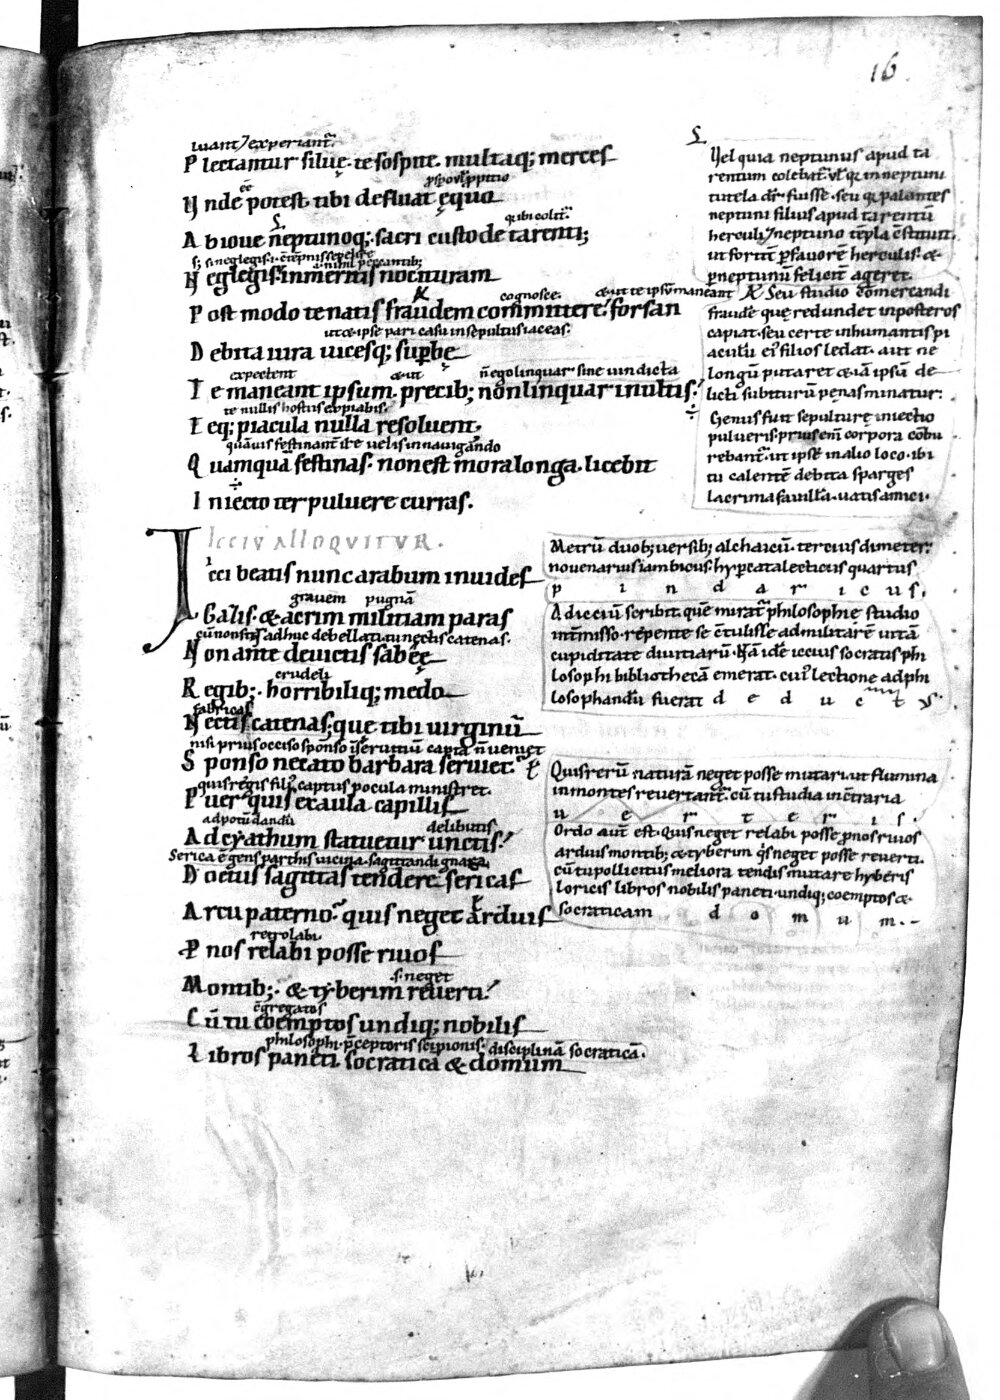 16
luant ł experiant᷑
Plectantur siluę te sospite. multaq; merces
ee᷑
Unde potest tibi defluat ęquo
Ab ioue neptunoq;. sacri custode tarenti;
Neglegis. inmeritis nocituram
cognosce.
Post modo te natis fraudem committere. forsan
ut & ipse pari casu insepultus iaceas.
Debita iura uicesq; supbę
expectent
Te maneant ipsum. precib; non linquar inultis.
te nullis hostiis expiabis.
Teq; piacula nulla resoluent.
Quamquā festinas. non est mora longa. licebit
Iniecto ter puluere curras.
ICCIU ALLOQUITUR.
Icci beatis nunc arabum inuides
grauem pugnā
Gazis. & acrim militiam paras
Non ante deuictis sabęę
crudeli
Regib;. horribiliq; medo
fabricas
Nectis catenas; quę tibi uirginū
nisi prius occiso sponso
Sponso necato barbara seruiet.
quis regis fili᷒ captus pocula ministret.
Puer quis ex aula capillis
ad potū dandū delibutis
Ad cyathum statuetur unctis?
Serica ē gens parthis uicina. sagittandi gnara.
Doctus sagittas tendere sericas
Arcu paterno. quis neget arduis
retro labi.
Pronos relabi posse riuos
.s. neget
Montib;. & tyberim reuerti?
egregatos
Cū tu coemptos undiq; nobilis
philosophi. p̄ceptoris scipionis. disciplinā socraticā.
Libros paneti. socraticā & domum
Uel quia neptunus apud ta
rentum colebat᷑ uł q in neptuni
tutela dr̄ fuisse. seu q palantes
neptuni filius apud tarentū
herculi ł neptuno tēpla cstituit.
ut fortit᷑ p fauorē herculis. &
p neptunū felicit᷑ ageret.
Seu studio cōmercandi
fraudē quę redundet in posteros
capiat. seu certe inhumantis pi
aculū ei᷒ filios ledat. aut ne
longū putaret & iā ipsū de
licti subiturū penas minatur:
Genus fuit sepulturę iniectio
pulueris. prius enī corpora cōbu
rebant᷑. ut ipse in alio loco. ibi
tu calentē debita sparges
lacrima fauillā uatis amici.
Metrū duob; uersib; alchaicū. tercius dimeter:
nouenarius iambicus. hypcatalecticus quartus
pindaricus.
Ad icciū scribit. quē mirat᷑ philosophię studio
int̄misso. repente se ctulisse ad militarē uitā
cupiditate diuitiarū. Nā idē iccius socratis phi
losophi bibliothecā emerat. cui᷒ lectione ad phi
losophandū fuerat deductus.
Quis rerū naturā neget posse mutari. ut flumina
in montes reuertant᷑. cū tu studia in ctraria
uerteris.
Ordo aut̄ est. Quis neget relabi posse pnos riuos
arduis montib;. & tyberim qis neget posse reuerti.
cū tu pollicitus meliora tendis mutare hyberis
loricis libros nobilis paneti. undiq; coemptos &
socraticam domum.